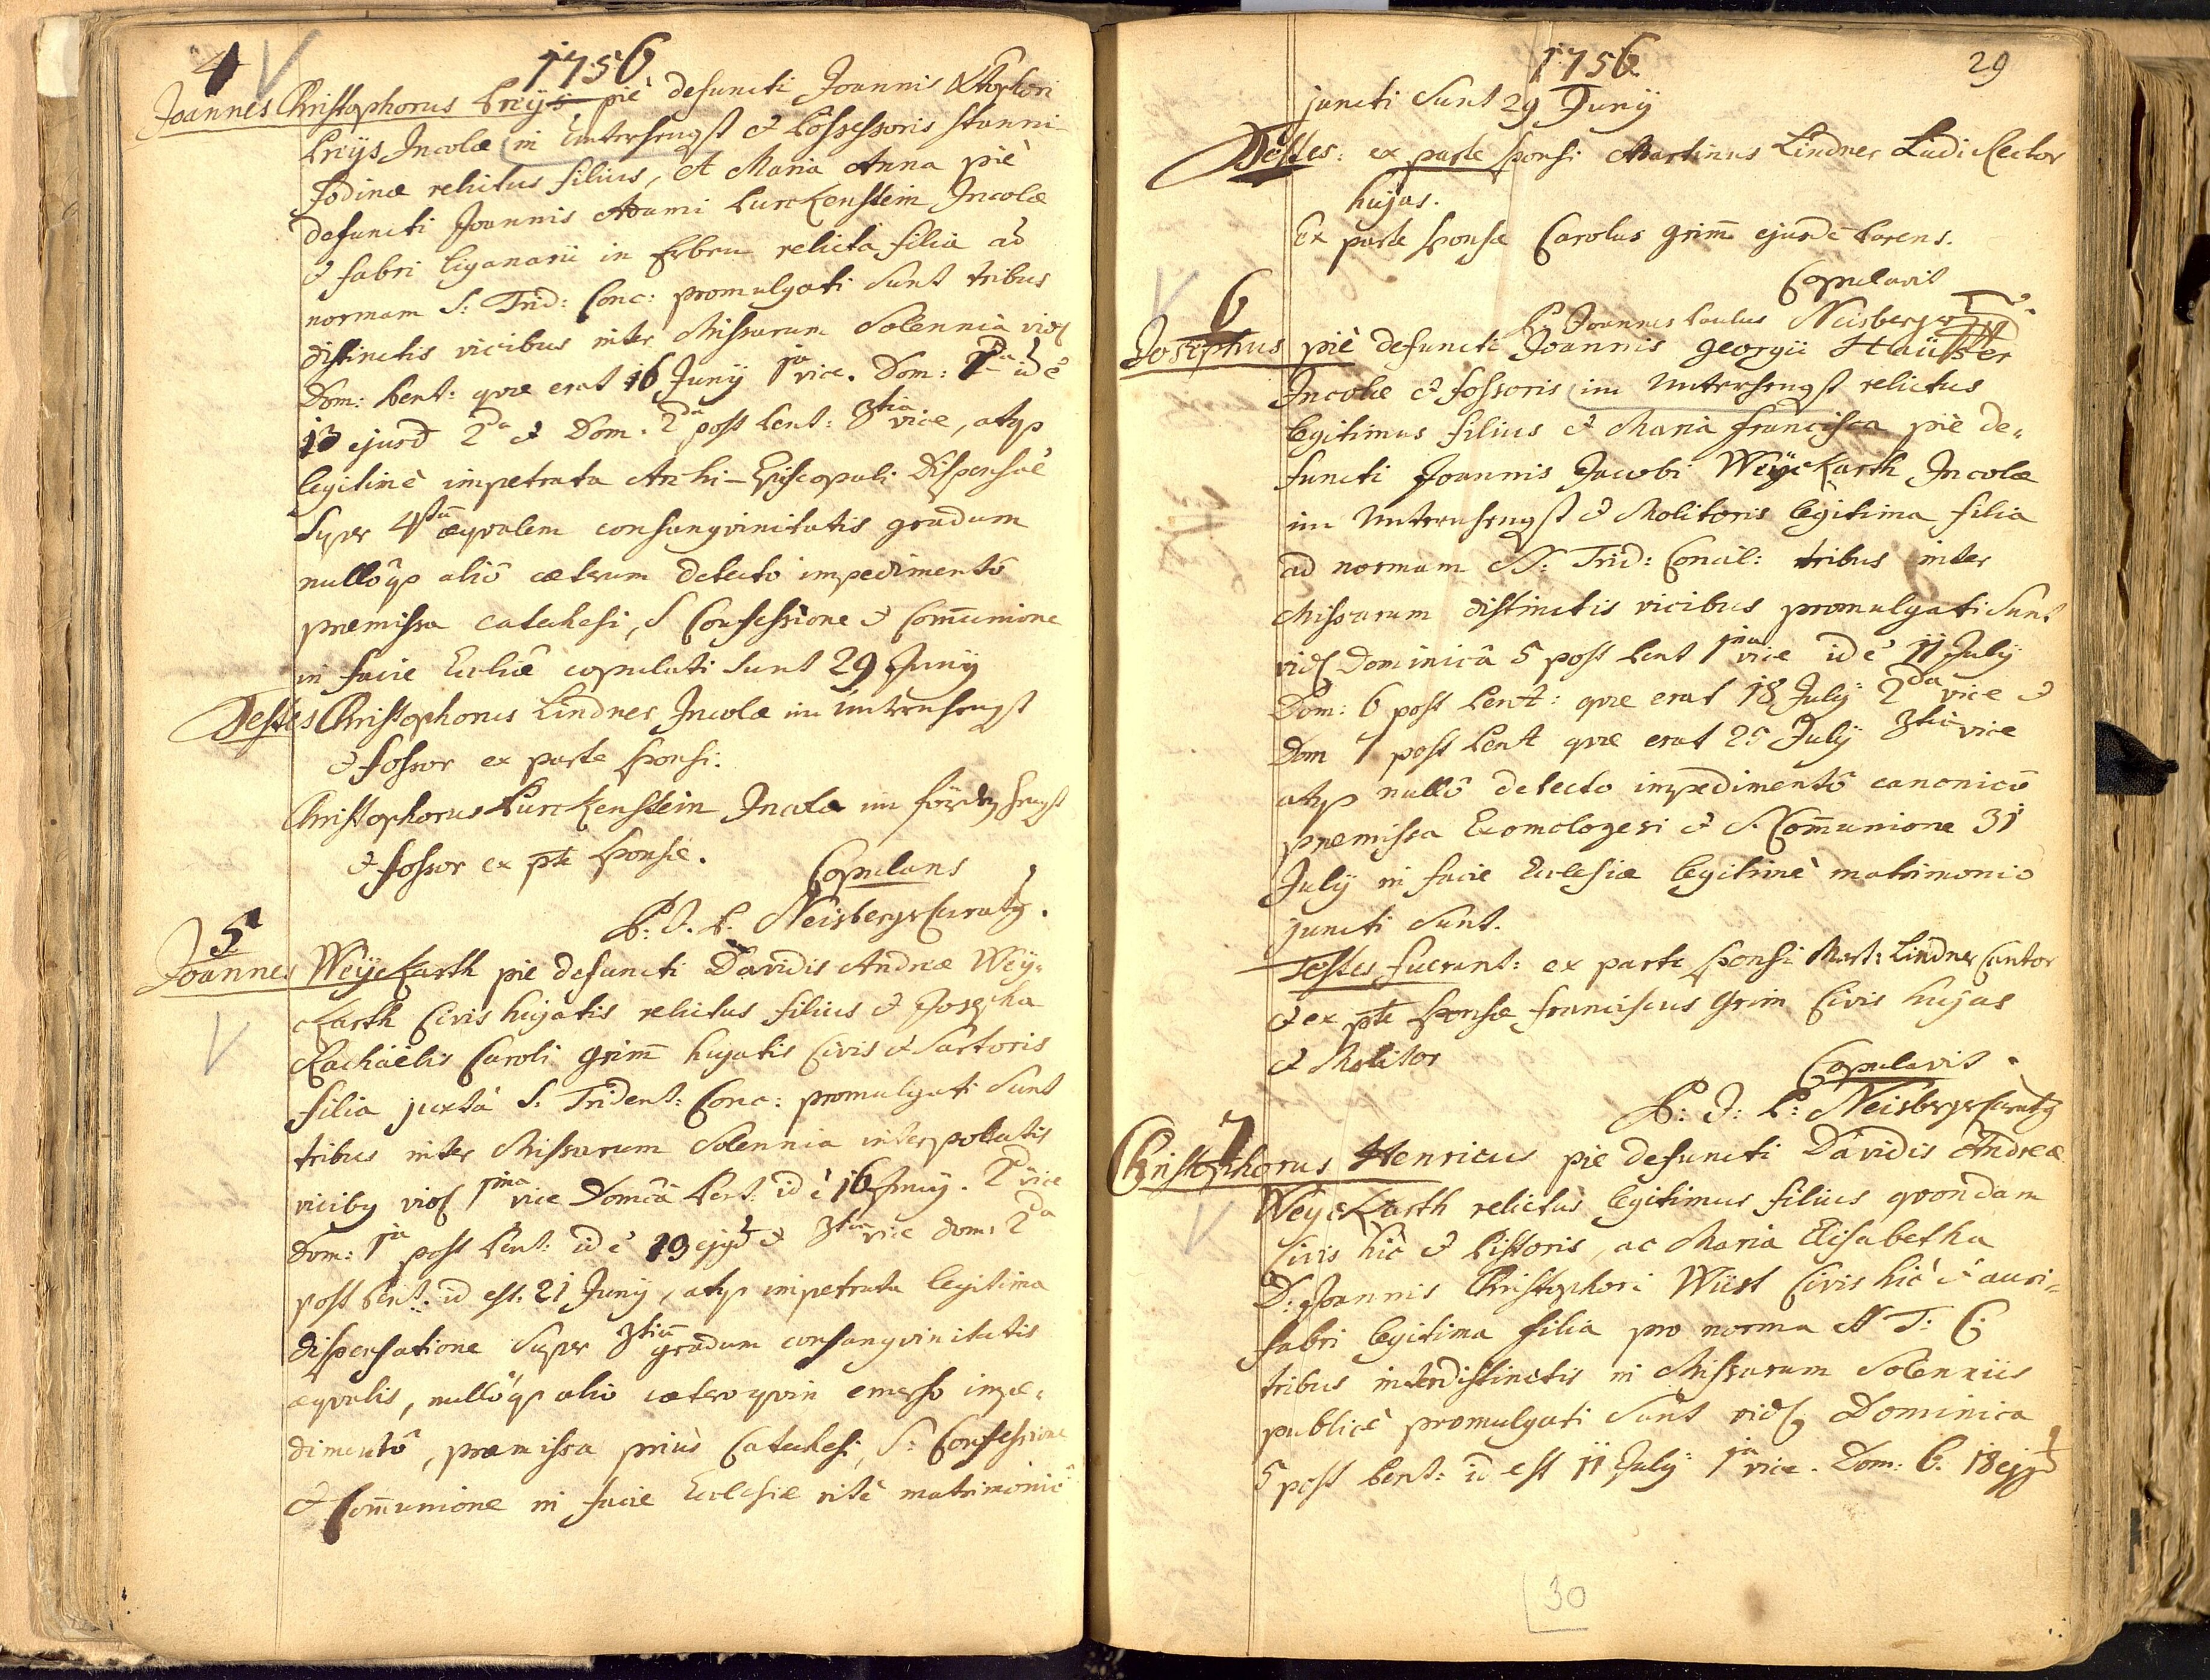 4
1756
Joannes Christophorus Preÿs piè defuncti Joannis Xtophori
Preÿs Incolæ in Unterhengst & Possessoris stanni-
fodinæ relictus filius, et Maria Anna piè
defuncti Joannis Adami Purckenstein Incolæ
& fabri lignarii in relicta filia ad
normam S: Trid: Conc: promulgati sunt tribus
distinctis vicibus inter Missarum Solennia
Dom: Pent: quæ erat 16 Junÿ 1ma vice. Dom: id ē
13 ejusd 2da & Dom. 2da post Pent: 3tia vice, atqe
legitimè impetrata Archi-Episcopali
Super 4tum æqvalem consangvinitatis gradum
nullôqe aliô cæterum detecto impedimentô
præmissa catechesi, S Confessione & Com̄unione
in facie Eccliæ copulati sunt 29 Junÿ
Testes Christophorus Lindner Incolæ im Unternhengst
& fossor ex parte sponsi.
Christophorus Purckenstein Incola im
& fossor ex pte sponsæ.
Copulans
P: J. P. Neisberger Curatg.
5
Joannes Weÿckarth pie defuncti Davidis Andreæ Weÿ-
ckarth Civis hujatis relictus filius & Josepha
Rachaëlis Caroli Grim̄ hujatis Civis & Sartoris
filia juxta S: Trident: Conc: promulgati sunt
tribus inter Missarum Solennia interpolatis
vicibg 1ma vice Domcâ Pent: id ē 16 Junÿ. 2 vice
Dom: 1ma post Pent: id ē 13 & 3tia vice dom. 2da
post Pent: id est: 21 Junÿ, atqe impetrata legitima
dispensatione super 3tium gradum consangvinitatis
æqvalis, nullôqe alio cæteroqvin emerso impe-
dimentô, præmissa prius Catechesi, S: Confessione
& Com̄unione in facie Ecclesiæ ritè matrimoniô
1756
29
juncti sunt 29 Junÿ
Testes: ex parte sponsi Martinus Lindner Ludi Rector
hujas.
Ex parte sponsæ Carolus Grim̄ ejusdē Parens.
Copulavit
P. Joannes Paulus Neisberger
6
Josephus piè defuncti Joannis Georgii Haüßer
Incolæ & fossoris im Unterhengst relictus
legitimus filius & Maria Francisca piè de-
functi Joannis Jacobi Weÿckarth Incolæ
im Unternhengst & Molitoris legitima filia
ad normam SS: Trid: Concil: tribus inter
Missarum distinctis vicibus promulgati sunt
Dominicâ 5 post Pent 1ma vice id ē 11 Julÿ
Dom: 6 post Pent: quæ erat 18 Julÿ 2da vice &
Dom 7 post Pent quæ erat 25 Julÿ 3tia vice
atqe nullô detecto impedimentô canonicô
præmissa Exomologesi & S. Com̄unione 31
Julÿ in facie Ecclesiæ legitimè matrimonio
juncti sunt.
Testes fuerunt: ex parte sponsi Mart: Lindner Cantor
& ex pte sponsæ Franciscus Grim Civis hujas
& Molitor
Copulavit
P: J: P: Neisberger Curatg
7
Christophorus Henricus piè defuncti Davidis Andreæ
Weyckarth relictus legitimus filius qvondam
Civis hic & Pistoris, ac Maria Elisabetha
D: Joannis Christophori Wüst Civis hic & auri-
fabri legitima filia pro norma SS T: C:
tribus interdistinctis in Missarum Solenniis
publicè promulgati sunt Dominica
5 post Pent: id est 11 Julÿ 1ma vice. Dom: 6. 18
30